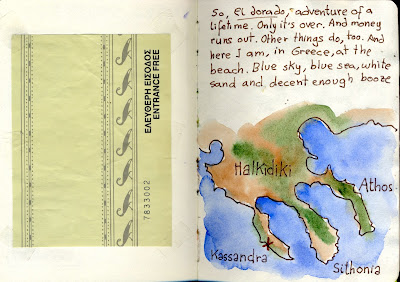 ΕΛΕΥΘΕΡΗ ΕΙΣΟΔΟΣ
ENTRANCE FREE
7833002
So, El dorado, adventure of a
lifetime. Only it's over. And money
runs out. Other things do, too. And
here I am, in Greece, at the
beach. Blue sky, blue sea, white
sand and decent enough booze
Halkidiki
Athos
Kassandra
Sithonia